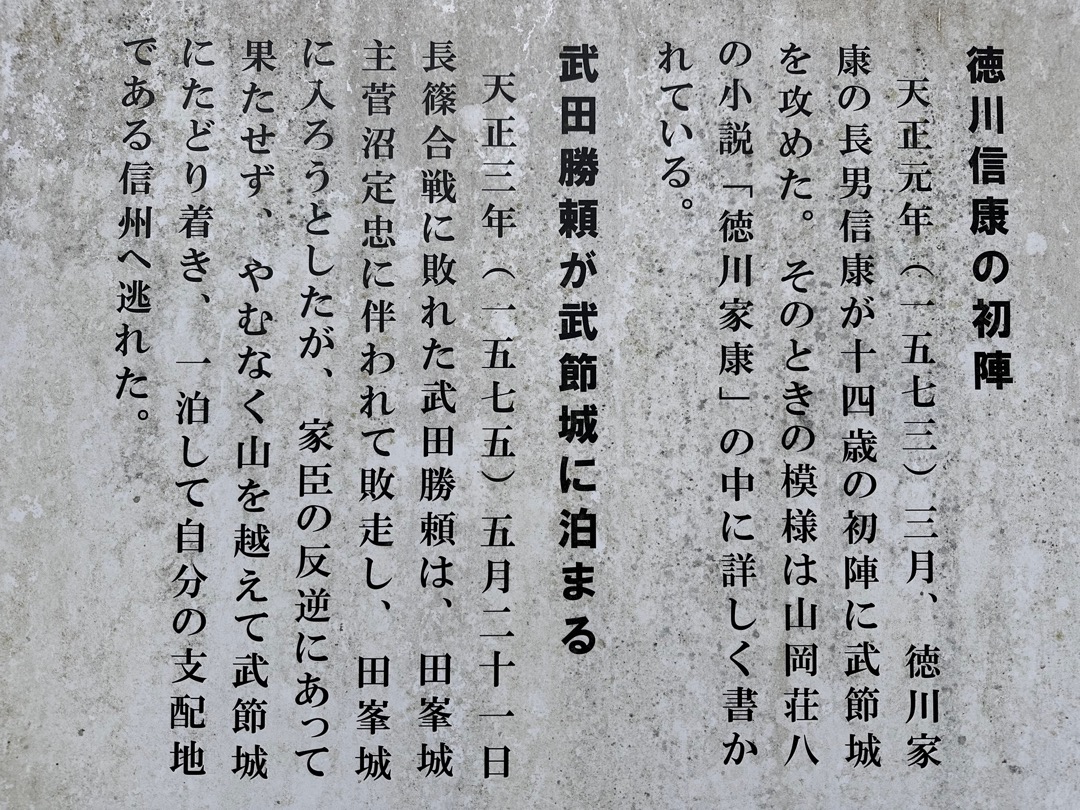 徳川信康の初陣
天正元年（一五七三）三月、徳川家
康の長男信康が十四歳の初陣に武節城
を攻めた。そのときの模様は山岡荘八
の小説「徳川家康」の中に詳しく書か
れている。
武田勝頼が武節城に泊まる
天正三年（一五七五）五月二十一日
長篠合戦に敗れた武田勝頼は、田峯城
主菅沼定忠に伴われて敗走し、田峯城
に入ろうとしたが、家臣の反逆にあって
果たせず、やむなく山を越えて武節城
にたどり着き、一泊して自分の支配地
である信州へ逃れた。